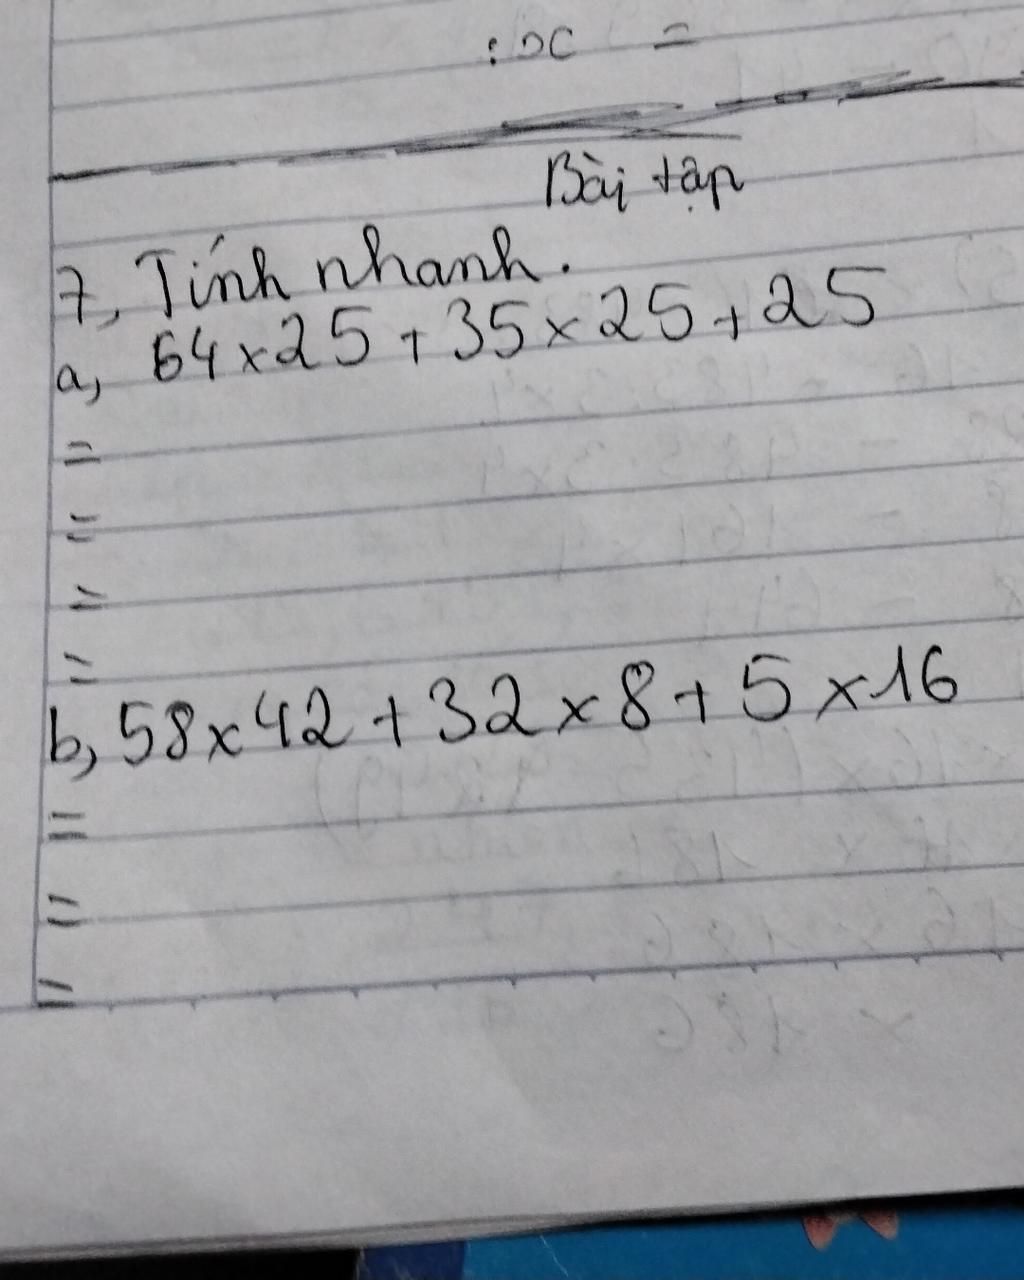 : x =
Bài tập
7, Tính nhanh.
a, 64 x 25 + 35 x 25 + 25
=
=
=
=
b, 58 x 42 + 32 x 8 + 5 x 16
=
=
=